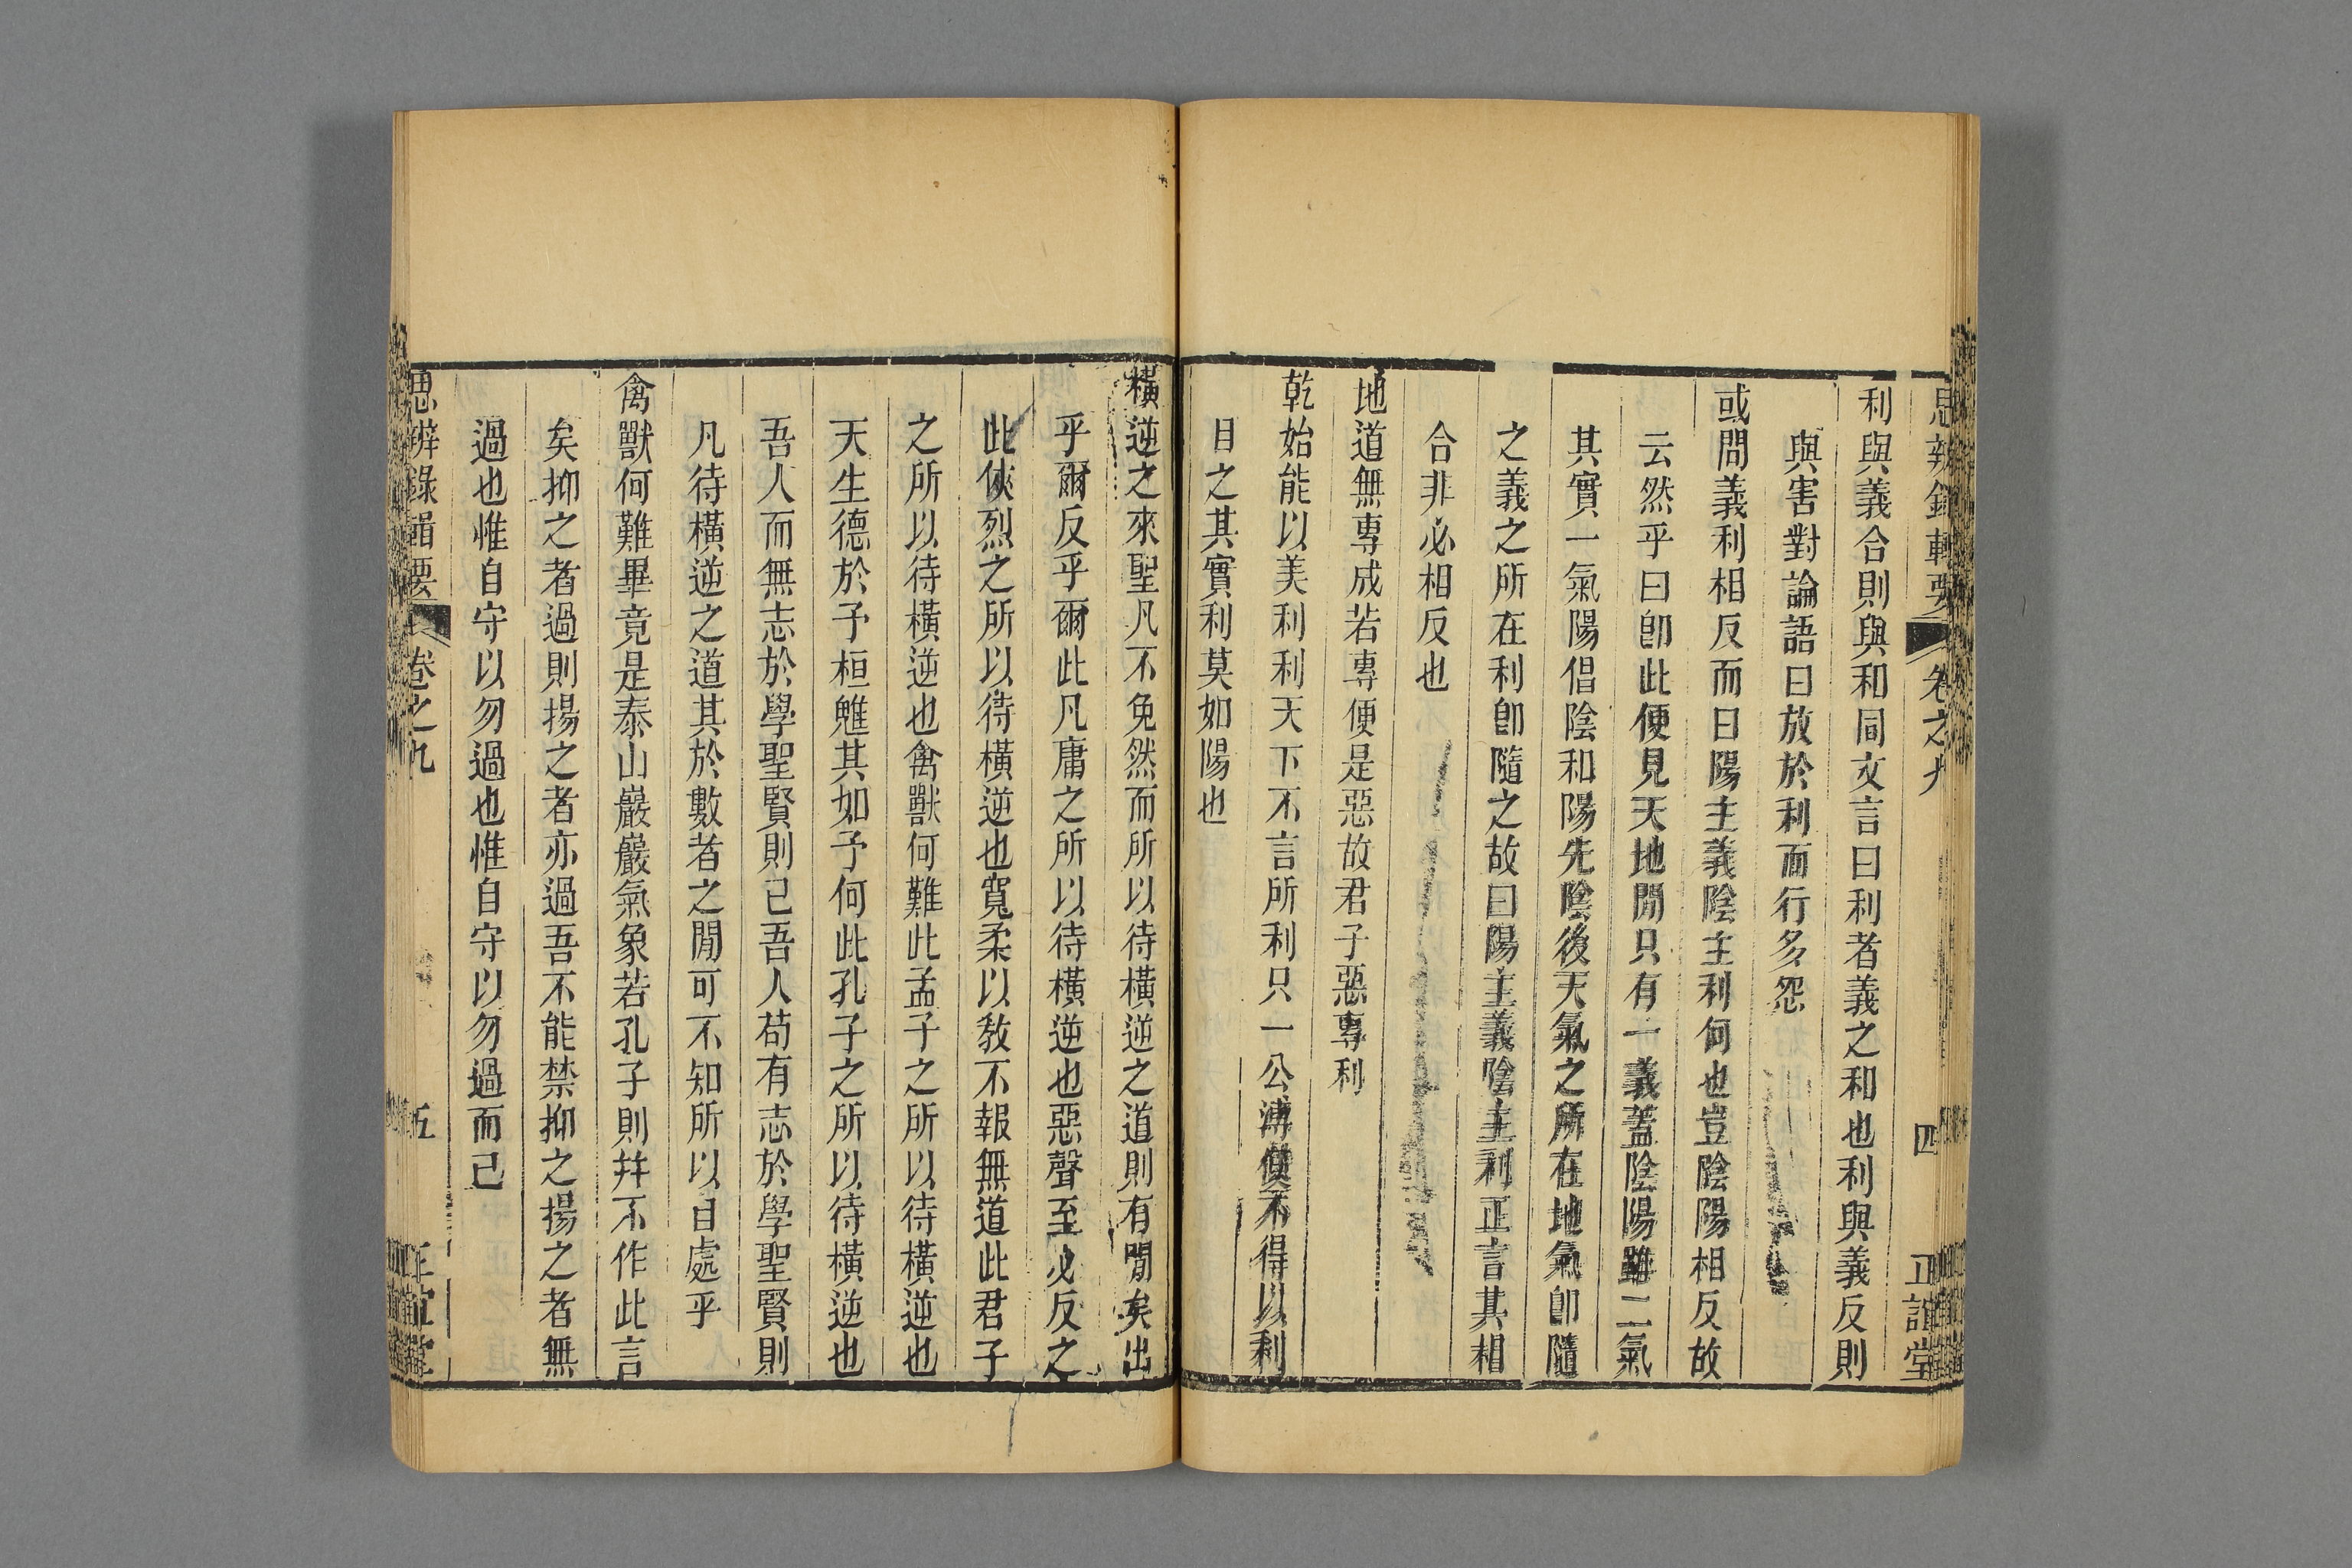 思辨錄輯要 卷之九 四 正誼堂
利與義合則與和同文言曰利者義之和也利與義反則
與害對論語曰放於利而行多怨
或問義利相反而曰陽主義陰主利何也豈陰陽相反故
云然乎曰卽此便見天地閒只有一義蓋陰陽雖二氣
其實一氣陽倡陰和陽先陰後天氣之所在地氣卽隨
之義之所在利卽隨之故曰陽主義陰主利正言其相
合非必相反也
地道無專成若專便是惡故君子惡專利
乾始能以美利利天下不言所利只一公溥便不得以利
目之其實利莫如陽也
橫逆之來聖凡不免然而所以待橫逆之道則有閒矣出
乎爾反乎爾此凡庸之所以待橫逆也惡聲至必反之
此俠烈之所以待橫逆也寬柔以敎不報無道此君子
之所以待橫逆也禽獸何難此孟子之所以待橫逆也
天生德於予桓魋其如予何此孔子之所以待橫逆也
吾人而無志於學聖賢則已吾人苟有志於學聖賢則
凡待橫逆之道其於數者之閒可不知所以自處乎
禽獸何難畢竟是泰山巖巖氣象若孔子則幷不作此言
矣抑之者過則揚之者亦過吾不能禁抑之揚之者無
過也惟自守以勿過也惟自守以勿過而已
思辨錄輯要 卷之九 五 正誼堂